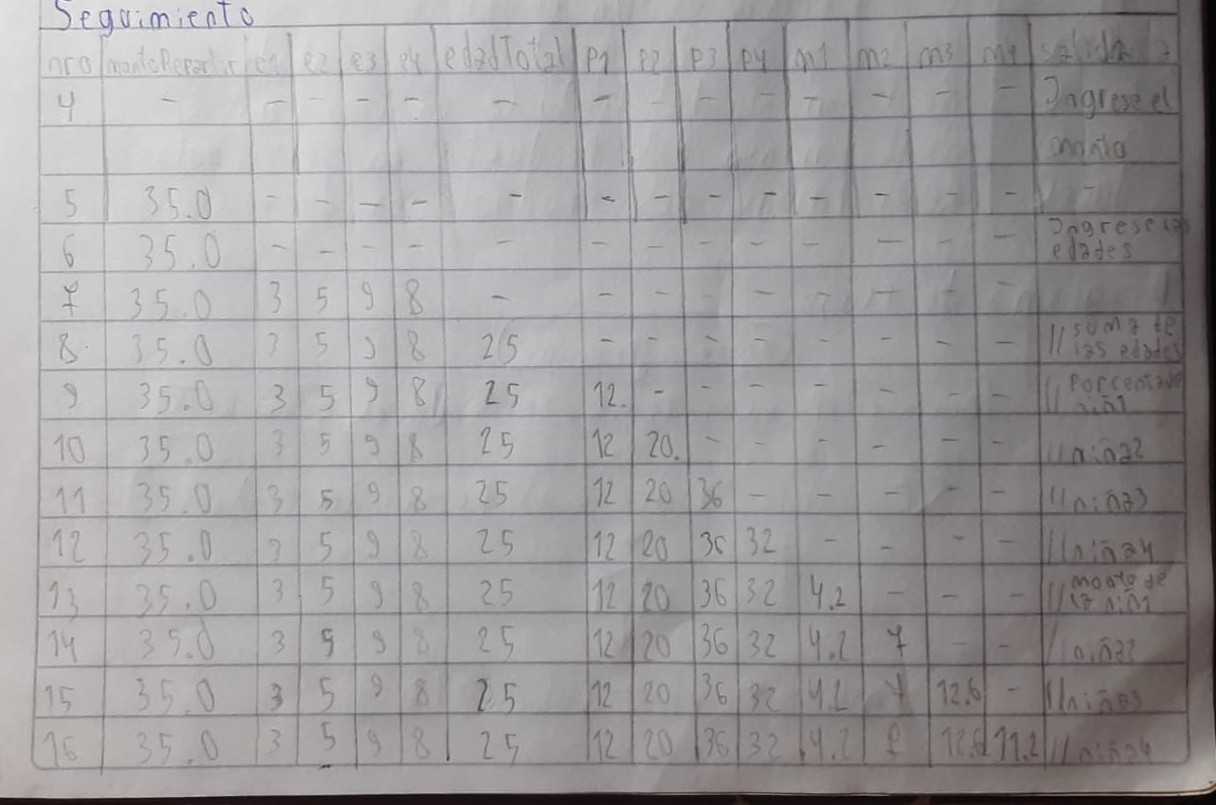 Seguimiento
nro montoRepartir e1 e2 e3 e4 edadTotal P1 P2 P3 P4 m1 m2 m3 m4 salida
4 - - - - - - - - - - - - - - Ingrese el
monto
5 35.0 - - - - - - - - - - - - - -
6 35.0 - - - - - - - - - - - - - Ingrese las
edades
7 35.0 3 5 9 8 - - - - - - - - -
8 35.0 3 5 9 8 25 - - - - - - - - // suma de
las edades
9 35.0 3 5 9 8 25 12. - - - - - - - // Porcentaje
niñ1
10 35.0 3 5 9 8 25 12 20. - - - - - - //niña2
11 35.0 3 5 9 8 25 12 20 36 - - - - - //niña3
12 35.0 3 5 9 8 25 12 20 36 32 - - - - //niña4
13 35.0 3 5 9 8 25 12 20 36 32 4.2 - - - // monto de
la niñ1
14 35.0 3 5 9 8 25 12 20 36 32 4.2 7 - - // niña2
15 35.0 3 5 9 8 25 12 20 36 32 4.2 7 12.6 - //niña3
16 35.0 3 5 9 8 25 12 20 36 32 4.2 12.6 11.2 //niña4